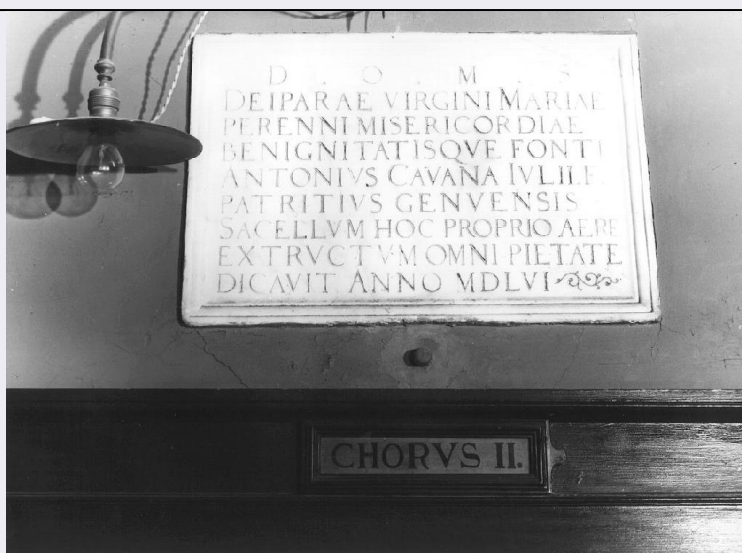 D . O . M . S
DEIPARAE VIRGINI MARIAE
PERENNI MISERICORDIAE
BENIGNITATISQVE FONTI
ANTONIVS CAVAÑA IVLII F
PATRITIVS GENVENSIS
SACELLVM HOC PROPRIO AERE
EXTRVCTVM OMNI PIETATE
DICAVIT ANNO MDLVI
CHORVS II.